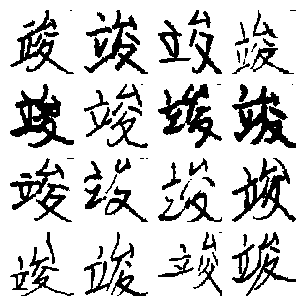 竣竣竣竣
竣竣竣竣
竣竣竣竣
竣竣竣竣